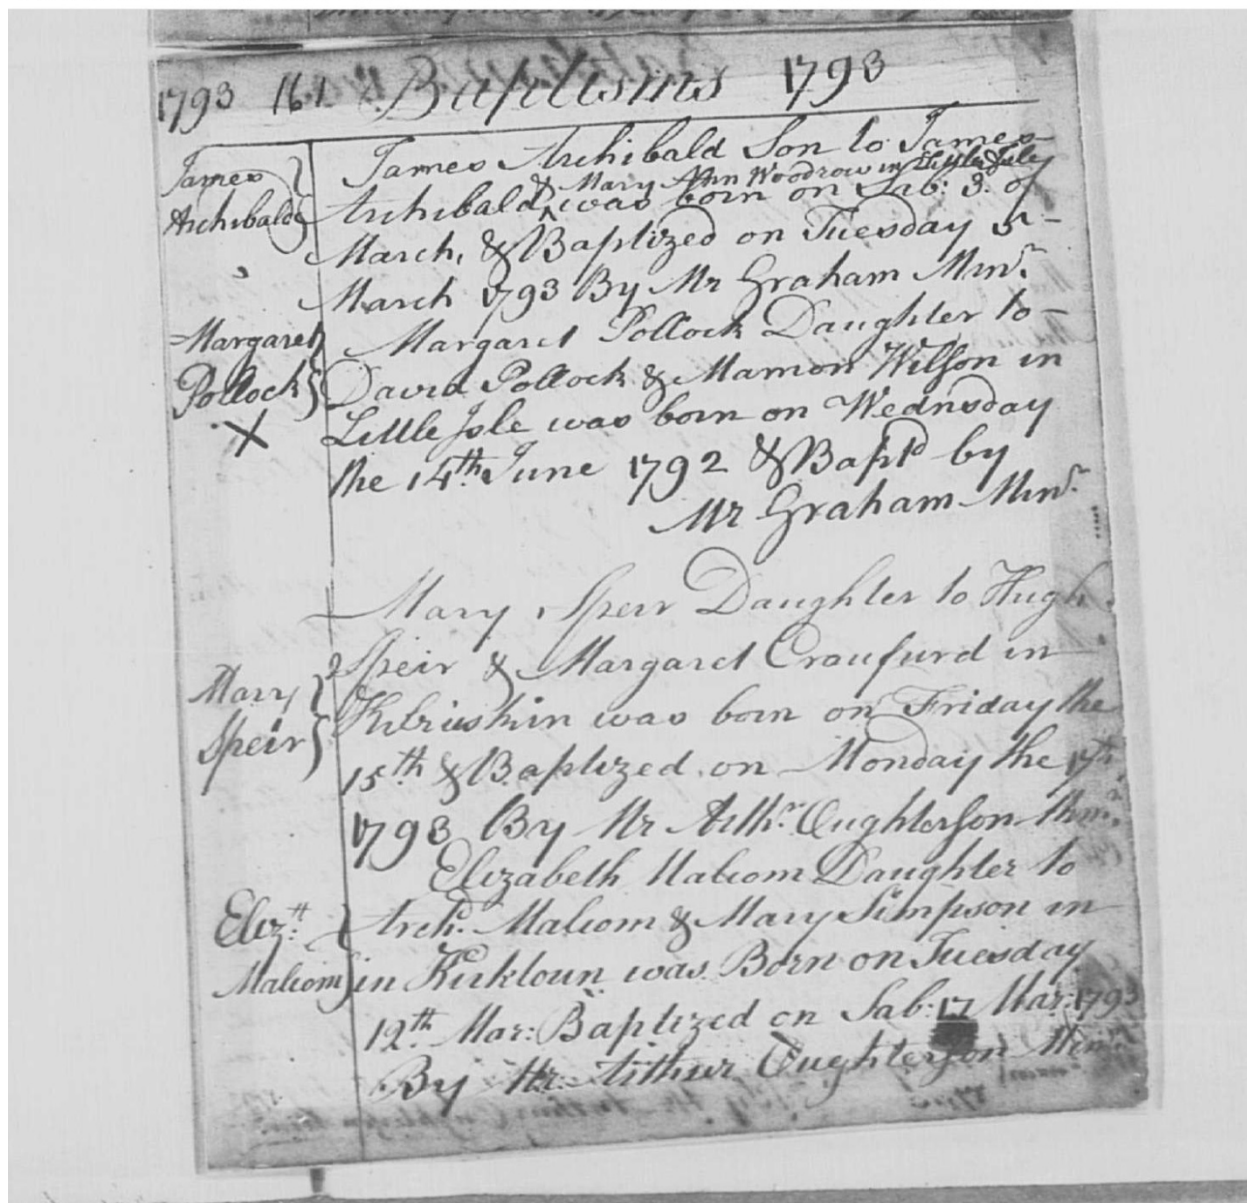 1793 161 Baptisms 1793
James
Archibald
James Archibald Son to James
& Mary Ann Woodrow in Little Isle
Archibald was born on Sab: 3. of
March, & Baptized on Tuesday 5
March 1793 By Mr Graham Minr.
Margaret
Pollock
X
Margaret Pollock Daughter to
David Pollock & Marrion Wilson in
Little Isle was born on Wednsday
the 14th June 1792 & Bapt'd by
Mr Graham Minr.
Mary
Speir
Mary Speir Daughter to Hugh
Speir & Margaret Craufurd in
Kilbrieshin was born on Friday the
15th & Baptized on Monday the 17th
1793 By Mr Arthr. Oughterson Minr.
Elizth
Malcom
Elizabeth Malcom Daughter to
Archd. Malcom & Mary Simpson in
in Kirktoun was Born on Tuesday
12th Mar: Baptized on Sab: 17 Mar: 1793
By Mr. Arthur Oughterson Minr.